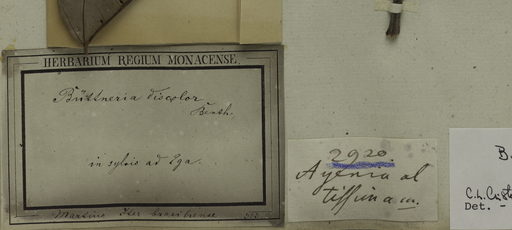 HERBARIUM REGIUM MONACENSE.
Büttneria discolor
Benth.
in sylvis ad Ega.
Martius Iter brasiliense
2920.
Ayenia al
tissima m.
B
C.L. Crist
Det. -